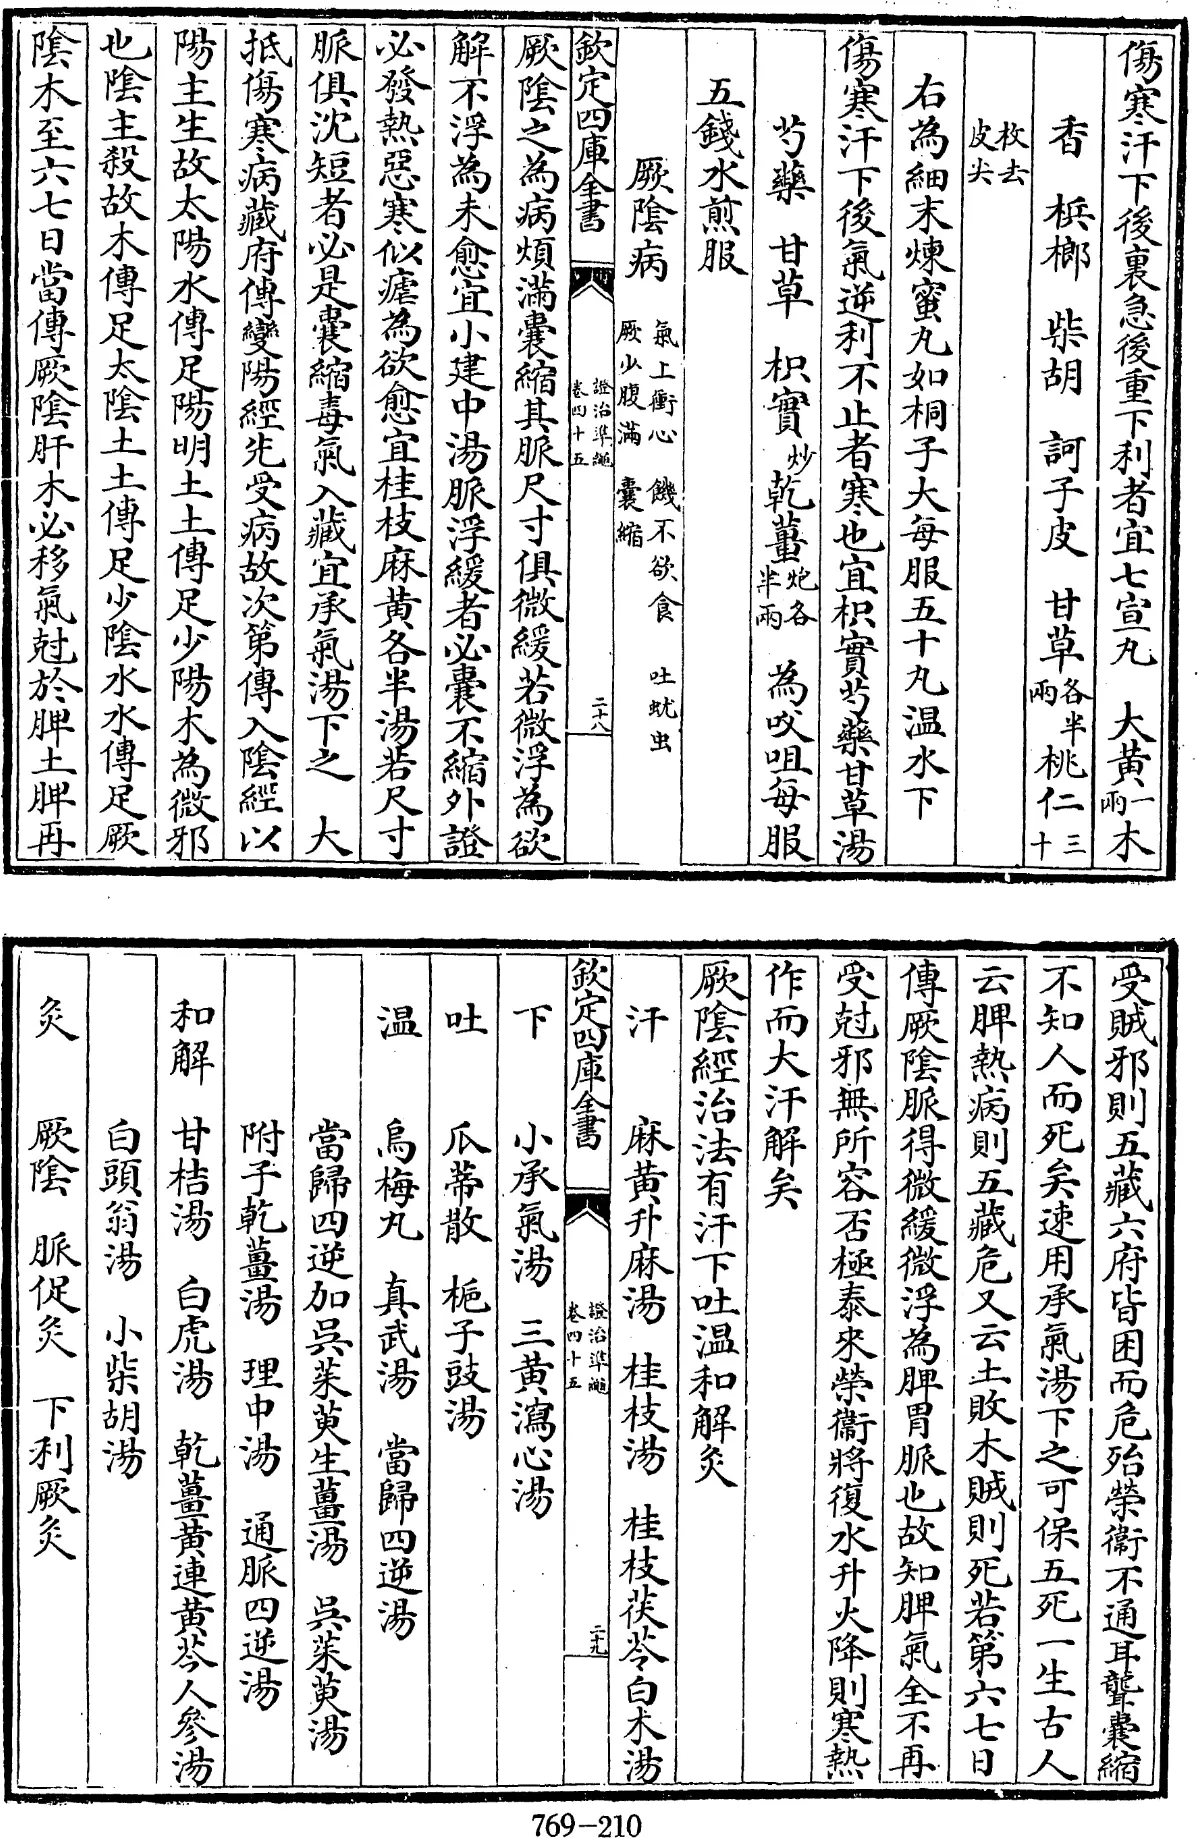 傷寒汗下後裏急後重下利者宜七宣丸　大黃一兩木
香　檳榔　柴胡　訶子皮　甘草各半兩桃仁二三十
枚去皮尖
右為細末煉蜜丸如桐子大每服五十丸温水下
傷寒汗下後氣逆利不止者寒也宜枳實芍藥甘草湯
芍藥　甘草　枳實炒乾薑炮各半兩　為㕮咀每服
五錢水煎服
厥陰病　氣上衝心　饑不欲食　吐蚘虫　厥少腹滿　囊縮
欽定四庫全書　證治準繩卷四十五　二十八
厥陰之為病煩滿囊縮其脈尺寸俱微緩若微浮為欲
解不浮為未愈宜小建中湯脈浮緩者必囊不縮外證
必發熱惡寒似瘧為欲愈宜桂枝麻黃各半湯若尺寸
脈俱沈短者必是囊縮毒氣入藏宜承氣湯下之　大
抵傷寒病藏府傳變陽經先受病故次第傳入陰經以
陽主生故太陽水傳足陽明土土傳足少陽木為微邪
也陰主殺故木傳足太陰土土傳足少陰水水傳足厥
陰木至六七日當傳厥陰肝木必移氣尅於脾土脾再
受賊邪則五藏六府皆困而危殆榮衞不通耳聾囊縮
不知人而死矣速用承氣湯下之可保五死一生古人
云脾熱病則五藏危又云土敗木賊則死若第六七日
傳厥陰脈得微緩微浮為脾胃脈也故知脾氣全不再
受尅邪無所容否極泰來榮衞將復水升火降則寒熱
作而大汗解矣
厥陰經治法有汗下吐温和解灸
汗　麻黃升麻湯　桂枝湯　桂枝茯苓白术湯
欽定四庫全書　證治準繩卷四十五　二十九
下　小承氣湯　三黃瀉心湯
吐　瓜蒂散　梔子豉湯
温　烏梅丸　真武湯　當歸四逆湯
當歸四逆加吳茱萸生薑湯　吳茱萸湯
附子乾薑湯　理中湯　通脈四逆湯
和解　甘桔湯　白虎湯　乾薑黃連黃芩人參湯
白頭翁湯　小柴胡湯
灸　厥陰　脈促灸　下利厥灸
769-210